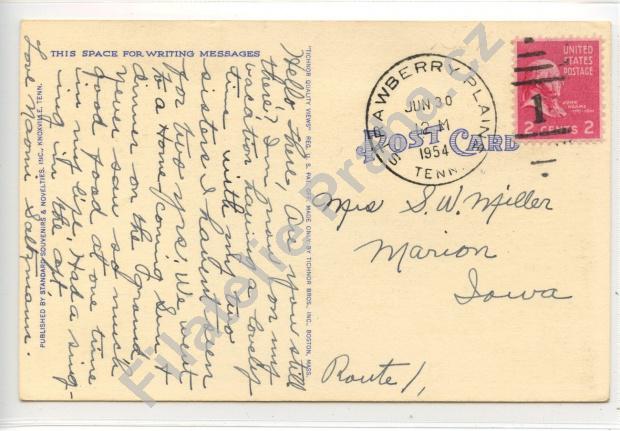 THIS SPACE FOR WRITING MESSAGES
Hello there, Are you still
there? I'm now on my
vacation havin a lovely
time with my two
sisters I havent seen
for two yrs! We went
to a Home-coming Sun &
dinner on the ground
Never saw so much
food food at one time
in my life. Had a sing-
ing in the aft
Love Naomi Saltzmann.
PUBLISHED BY STANDARD SOUVENIRS & NOVELTIES, INC., KNOXVILLE, TENN.
"TICHNOR QUALITY VIEWS" REG. U. S. PAT. OFF. MADE ONLY BY TICHNOR BROS., INC., BOSTON, MASS.
POST CARD
STRAWBERRY PLAINS
JUN 30
2 M
1954
TENN.
1
UNITED
STATES
POSTAGE
JOHN
ADAMS
2 CENTS 2
Mrs S. W. Miller
Marion
Iowa
Route 1,
Filatelie Praha.cz